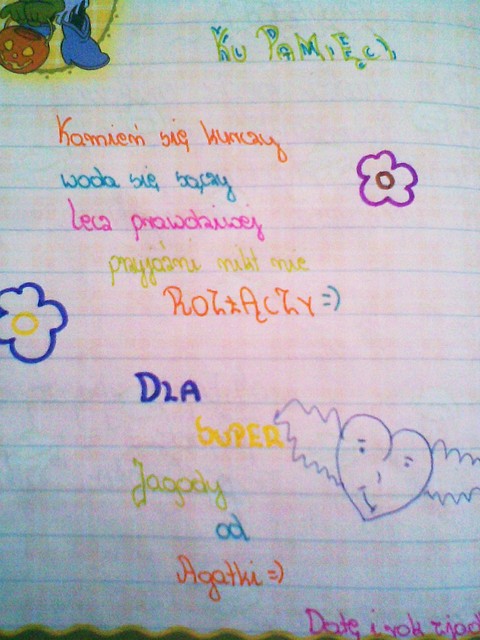 Ku PAMIĘCI
Kamień się kurczy
woda się sączy
lecz prawdziwej
przyjaźni nikt nie
ROZŁĄCZY =)
DLA
SUPER
Jagody
od
Agatki =)
Datę i rok zjad